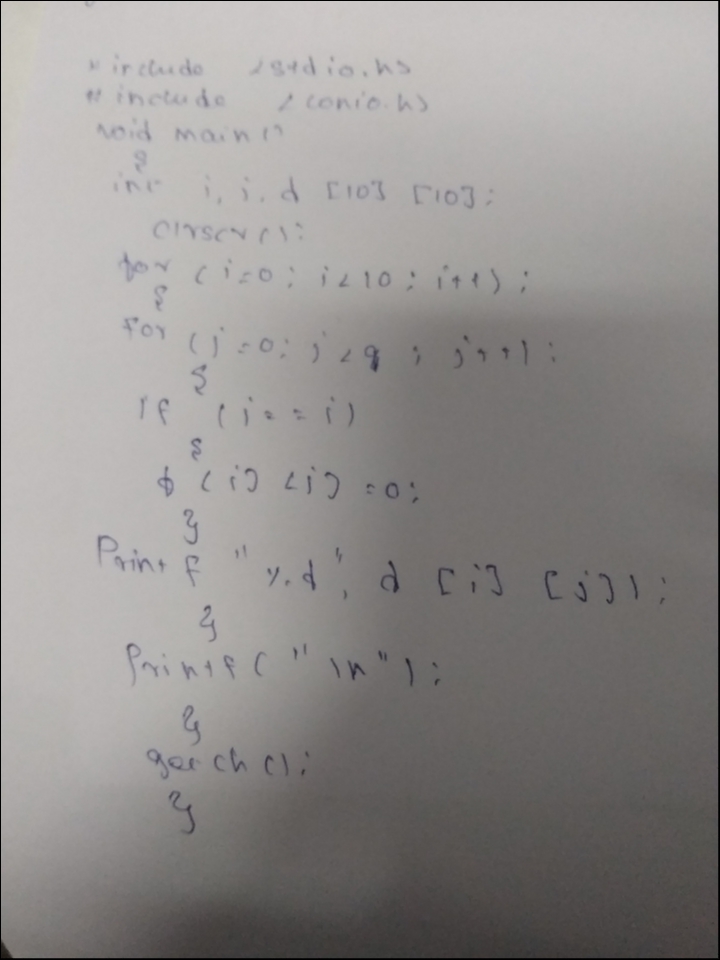 # include <stdio.h>
# include <conio.h>
void main()
{
int i, j, d [10] [10];
clrscr();
for (i=0; i<10; i++);
{
for (j=0; j<9; j++);
{
If (j==i)
{
d [i] [j] =0;
}
Printf "%d", d [i] [j]);
}
Printf ("\n");
}
getch();
}